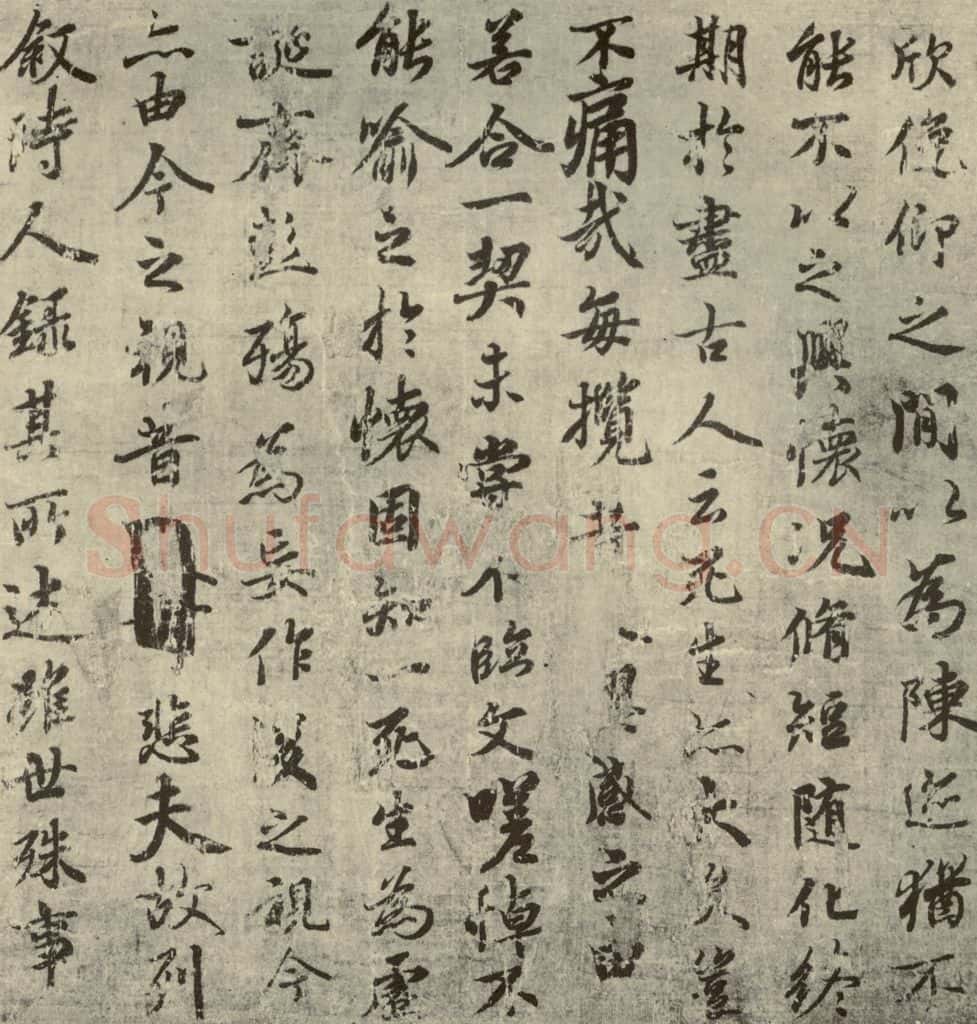 欣俛仰之閒以為陳迹猶不
能不以之興懷況脩短随化終
期於盡古人云死生亦大矣豈
不痛哉每攬昔感之由
若合一契未嘗不臨文嗟悼不
能喻之於懷固知一死生為虛
誕齊彭殤為妄作後之視今
亦由今之視昔悲夫故列
叙時人錄其所述雖世殊事
Shufawang.CN